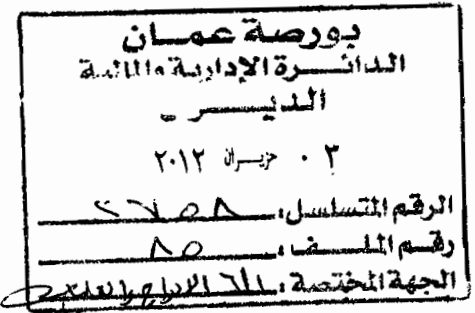 بورصة عمان
الدائرة الإدارية والمالية
الديوان
٠٣ حزيران ٢٠١٢
الرقم المتسلسل: ٢٧٥٨
رقم الملف: ٨٥
الجهة المختصة: الإدراج